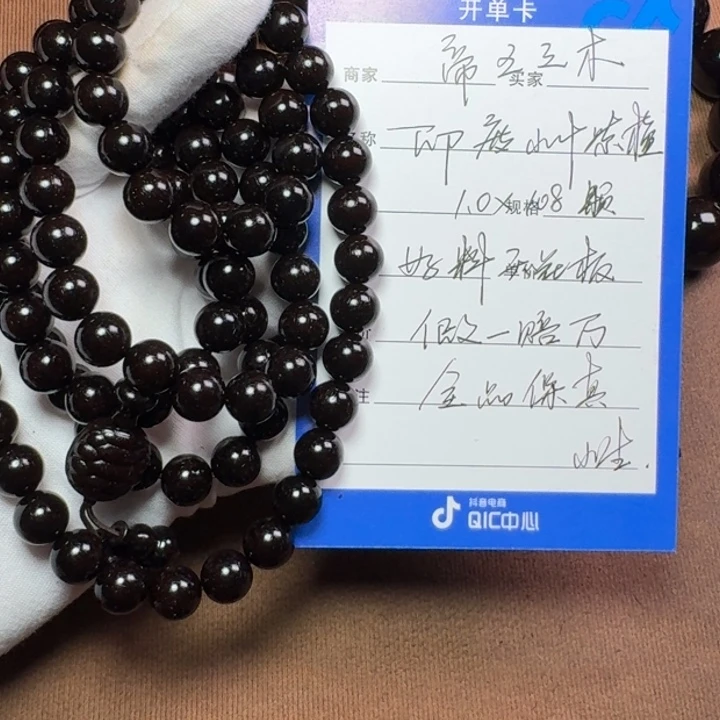 开单卡
商家 帝王之木 买家
名称 印度小叶紫檀
1.0×规格108 颗
好料 板
假一赔万
注 全品保真
抖音电商
QIC中心